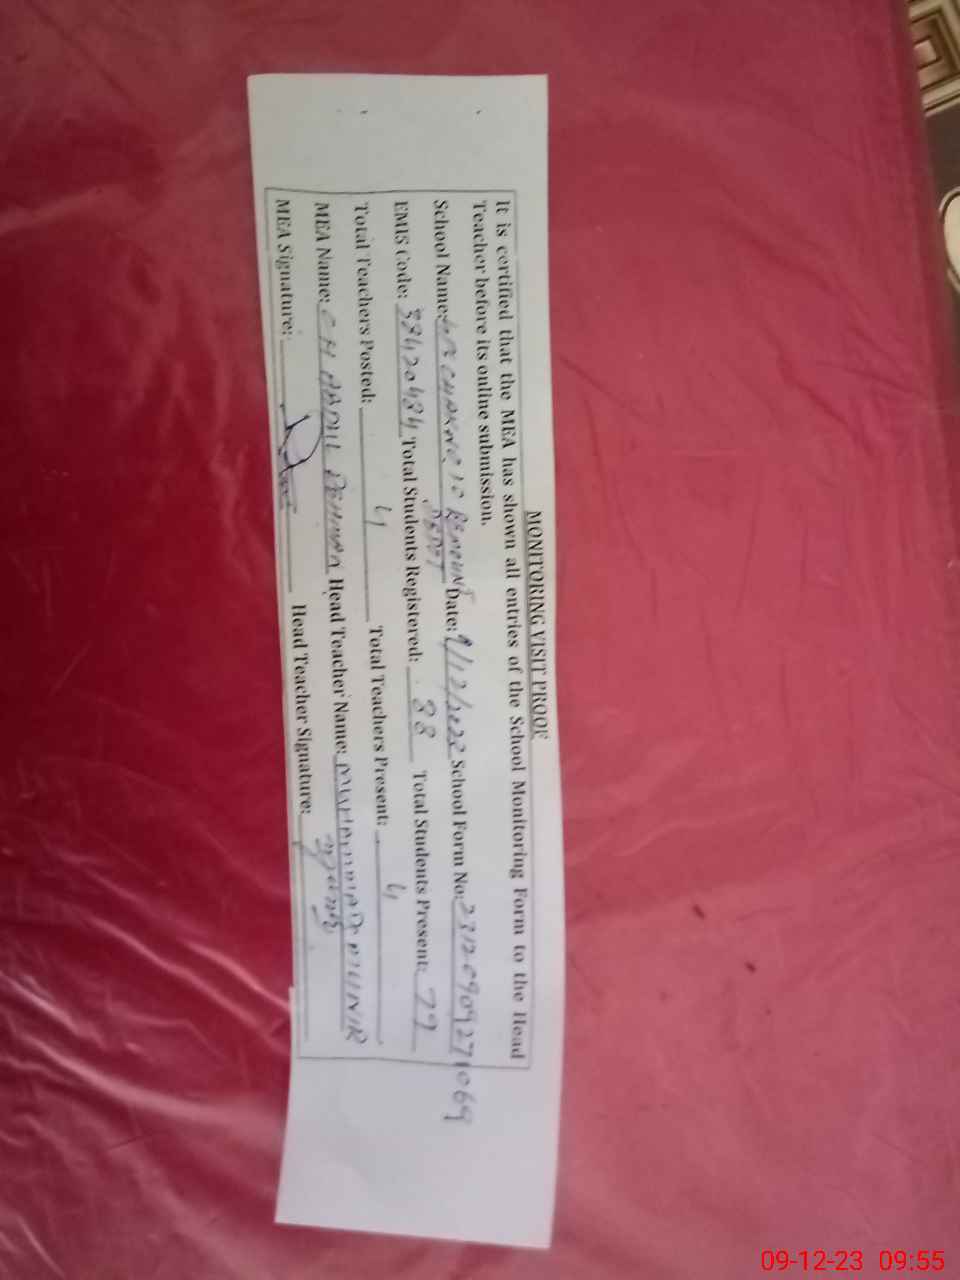 MONITORING VISIT PROOF
It is certified that the MEA has shown all entries of the School Monitoring Form to the Head
Teacher before its online submission.
School Name: CHAK NO 10 REMOUNT DEPOT Date: 9/12/2023 School Form No: 23120909271069
EMIS Code: 38420484 Total Students Registered: 88 Total Students Present: 79
Total Teachers Posted: 4 Total Teachers Present: 4
MEA Name: CH ABDUL REHMAN Head Teacher Name: MUHAMMAD MUNIR
MEA Signature: Head Teacher Signature:
09-12-23 09:55